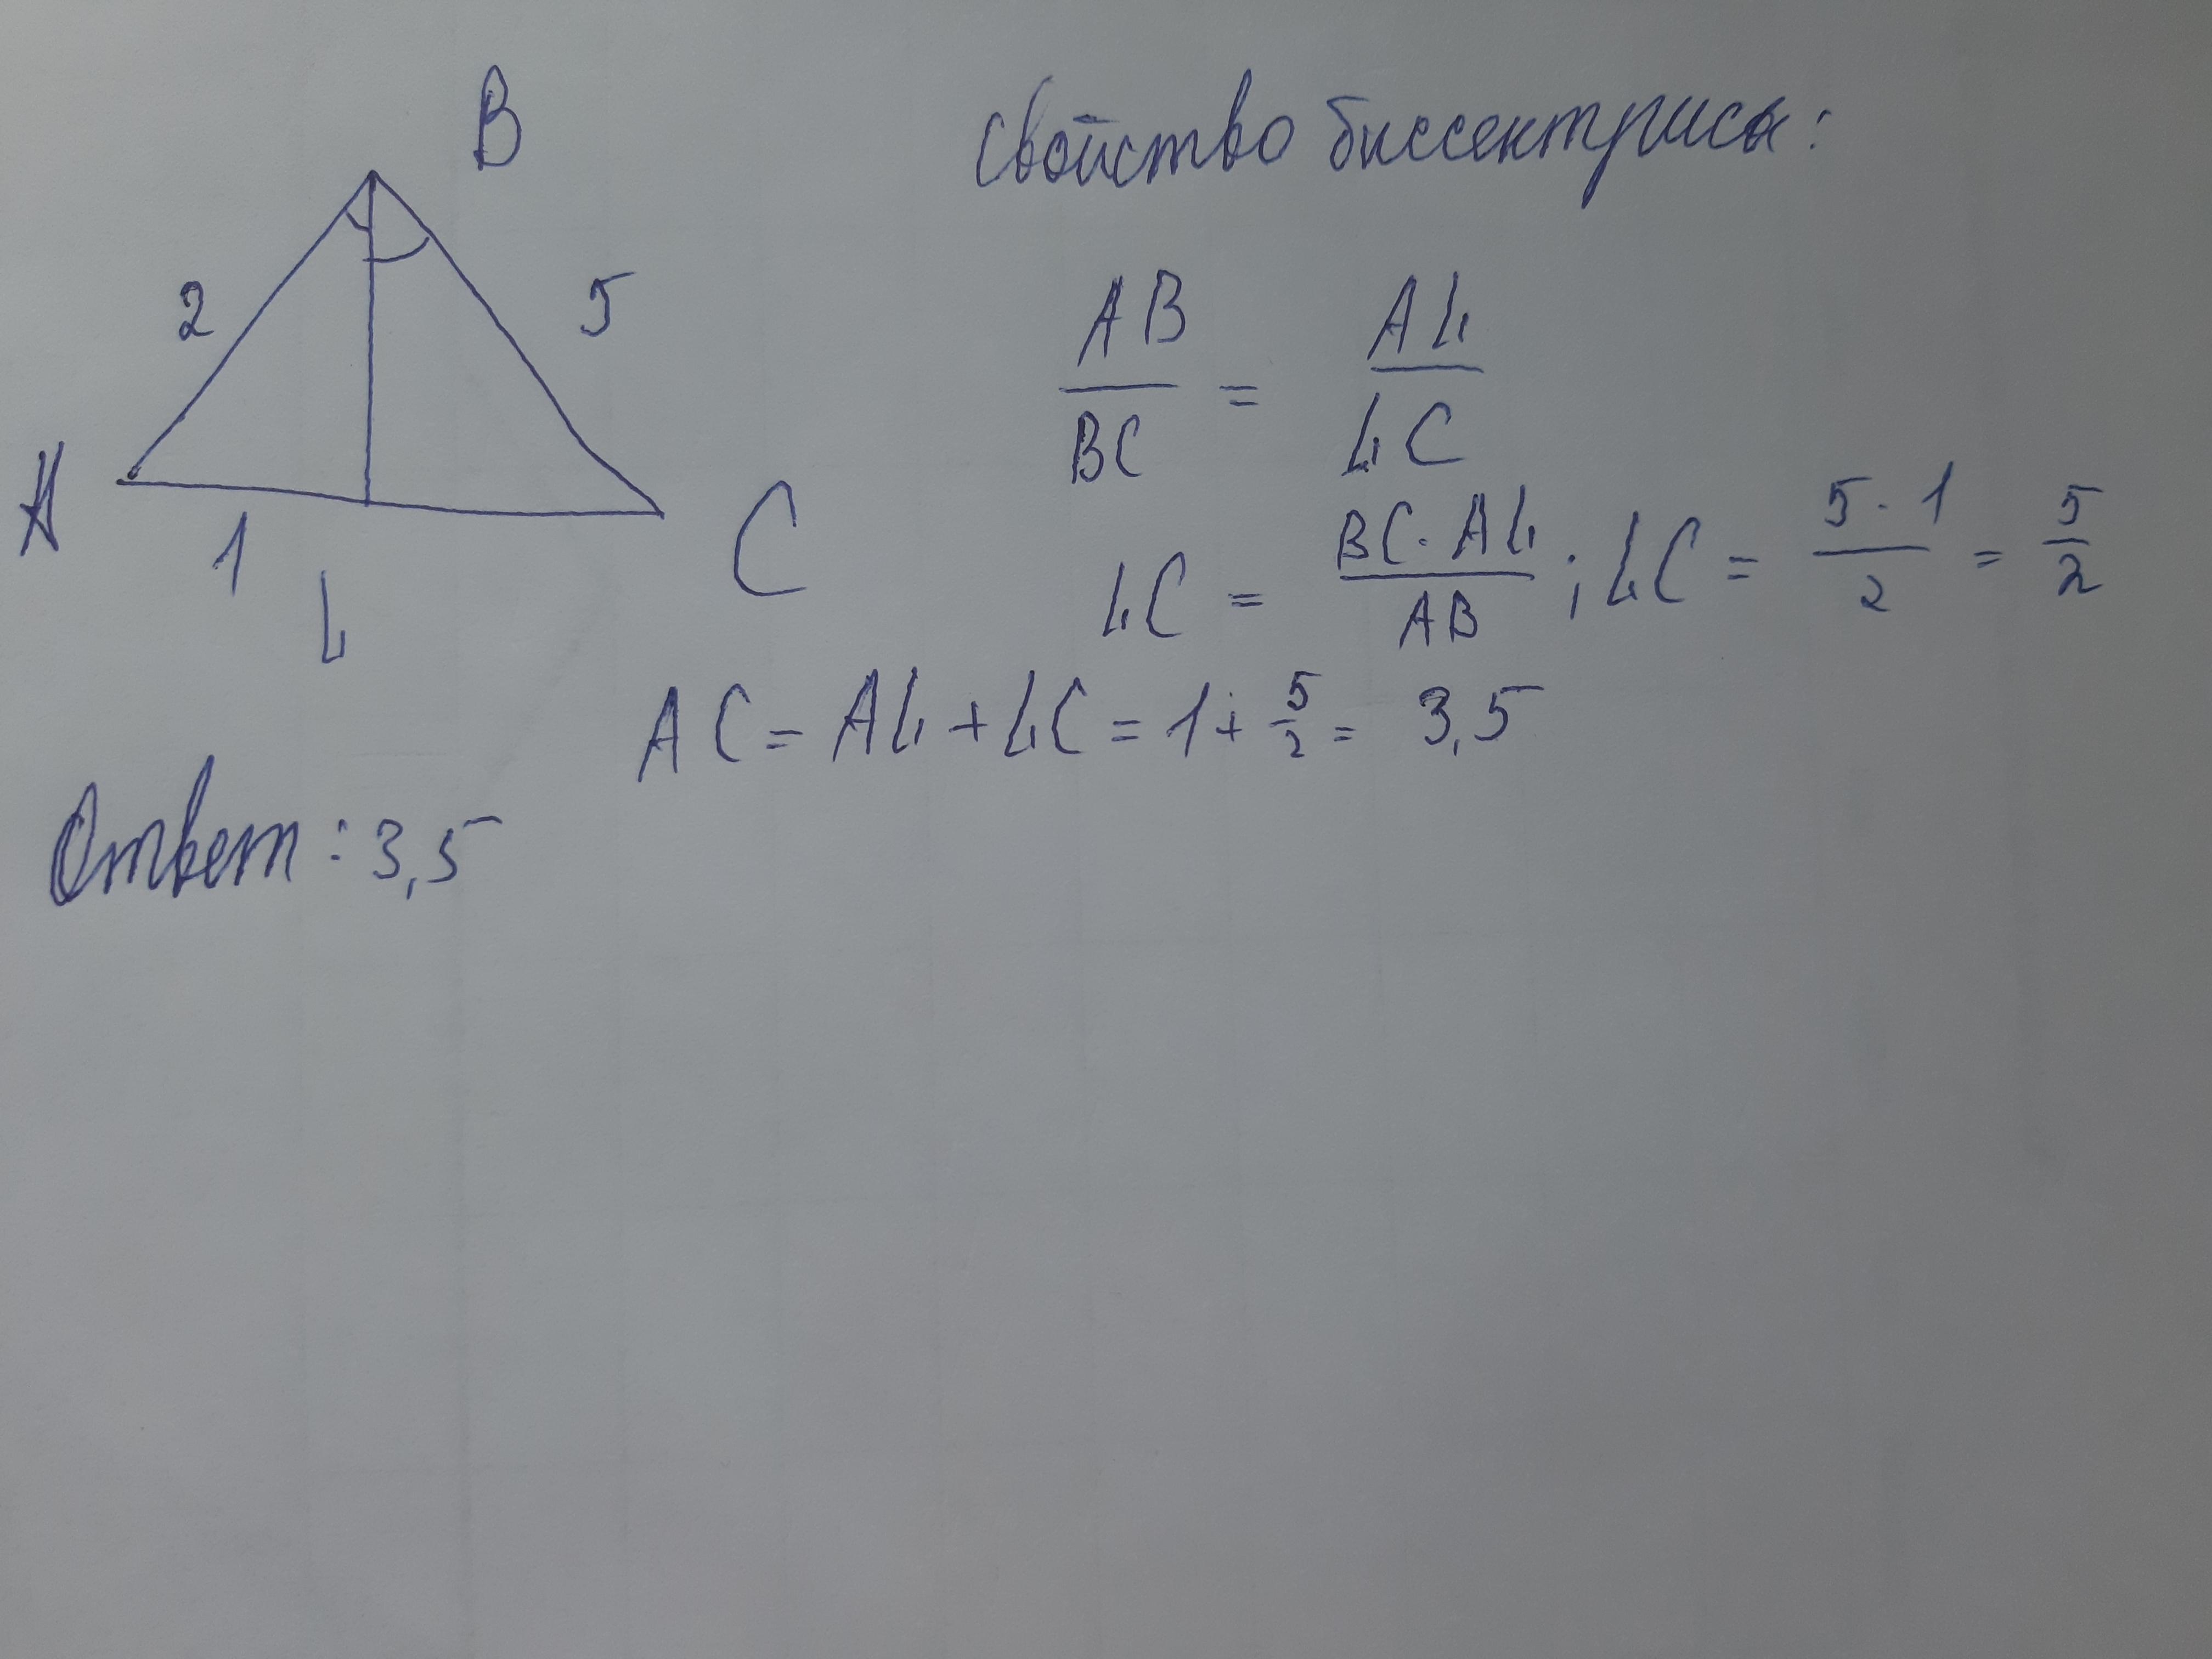 B
Свойство биссектрисы:
2
5
AB/BC = AL/LC
A
1
L
C
LC = BC·AL/AB ; LC = 5·1/2 = 5/2
AC = AL + LC = 1 + 5/2 = 3,5
Ответ: 3,5